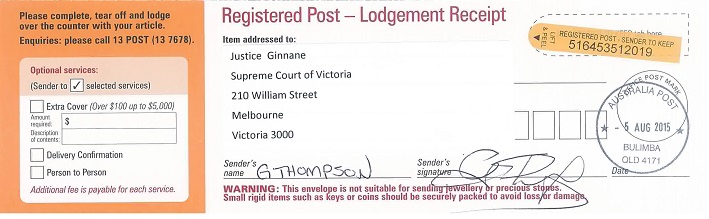 Please complete, tear off and lodge
over the counter with your article.
Enquiries: please call 13 POST (13 7678).
Optional services:
(Sender to ✓ selected services)
Extra Cover (Over $100 up to $5,000)
Amount
required:
$
Description
of contents:
Delivery Confirmation
Person to Person
Additional fee is payable for each service.
Registered Post – Lodgement Receipt
Item addressed to:
Justice Ginnane
Supreme Court of Victoria
210 William Street
Melbourne
Victoria 3000
Sender's
name
G THOMPSON
Sender's
signature
Date
WARNING: This envelope is not suitable for sending jewellery or precious stones.
Small rigid items such as keys or coins should be securely packed to avoid loss or damage.
LIFT
& PEEL
REGISTERED POST - SENDER TO KEEP
516453512019
here
OFFICE POST MARK
AUSTRALIA POST
- 5 AUG 2015
BULIMBA
QLD 4171